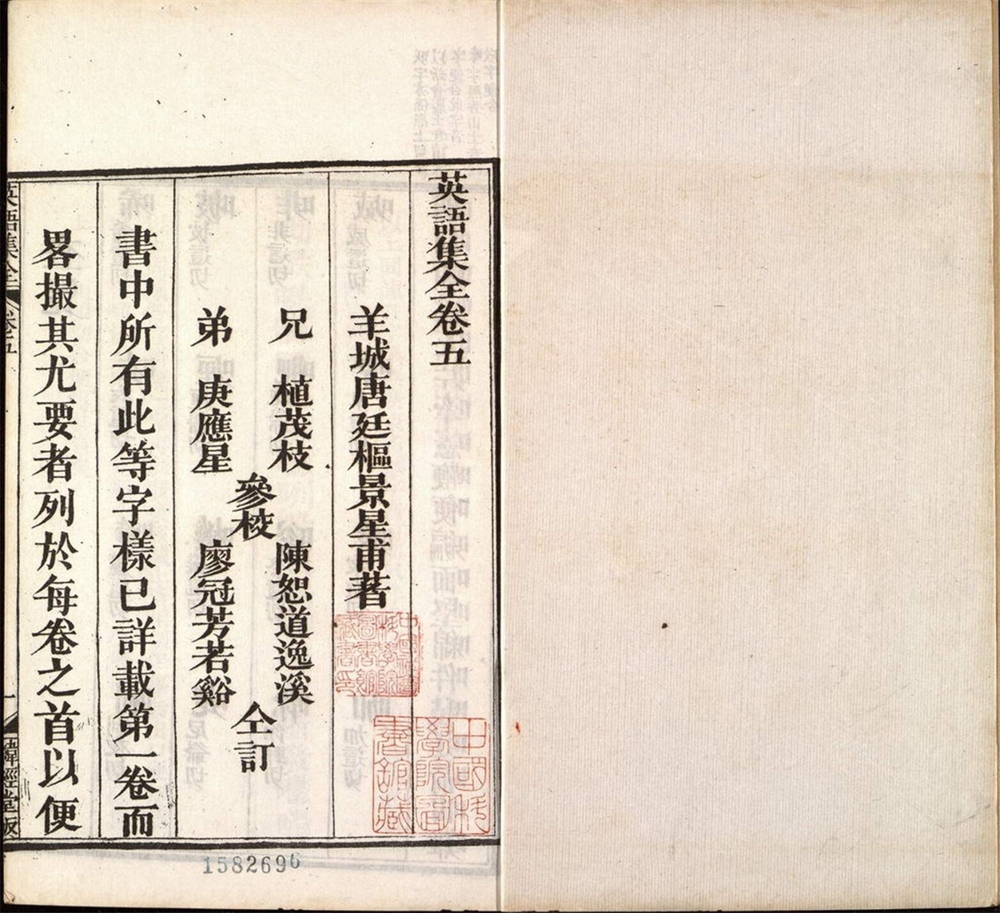 英語集全卷五
羊城唐廷樞景星甫著
兄 植茂枝 陳恕道逸溪
參校 仝訂
弟 庚應星 廖冠芳若谿
書中所有此等字樣已詳載第一卷而
畧撮其尤要者列於每卷之首以便
英語集全 卷五
緯經堂板
中國科學院圖書館藏
1582696